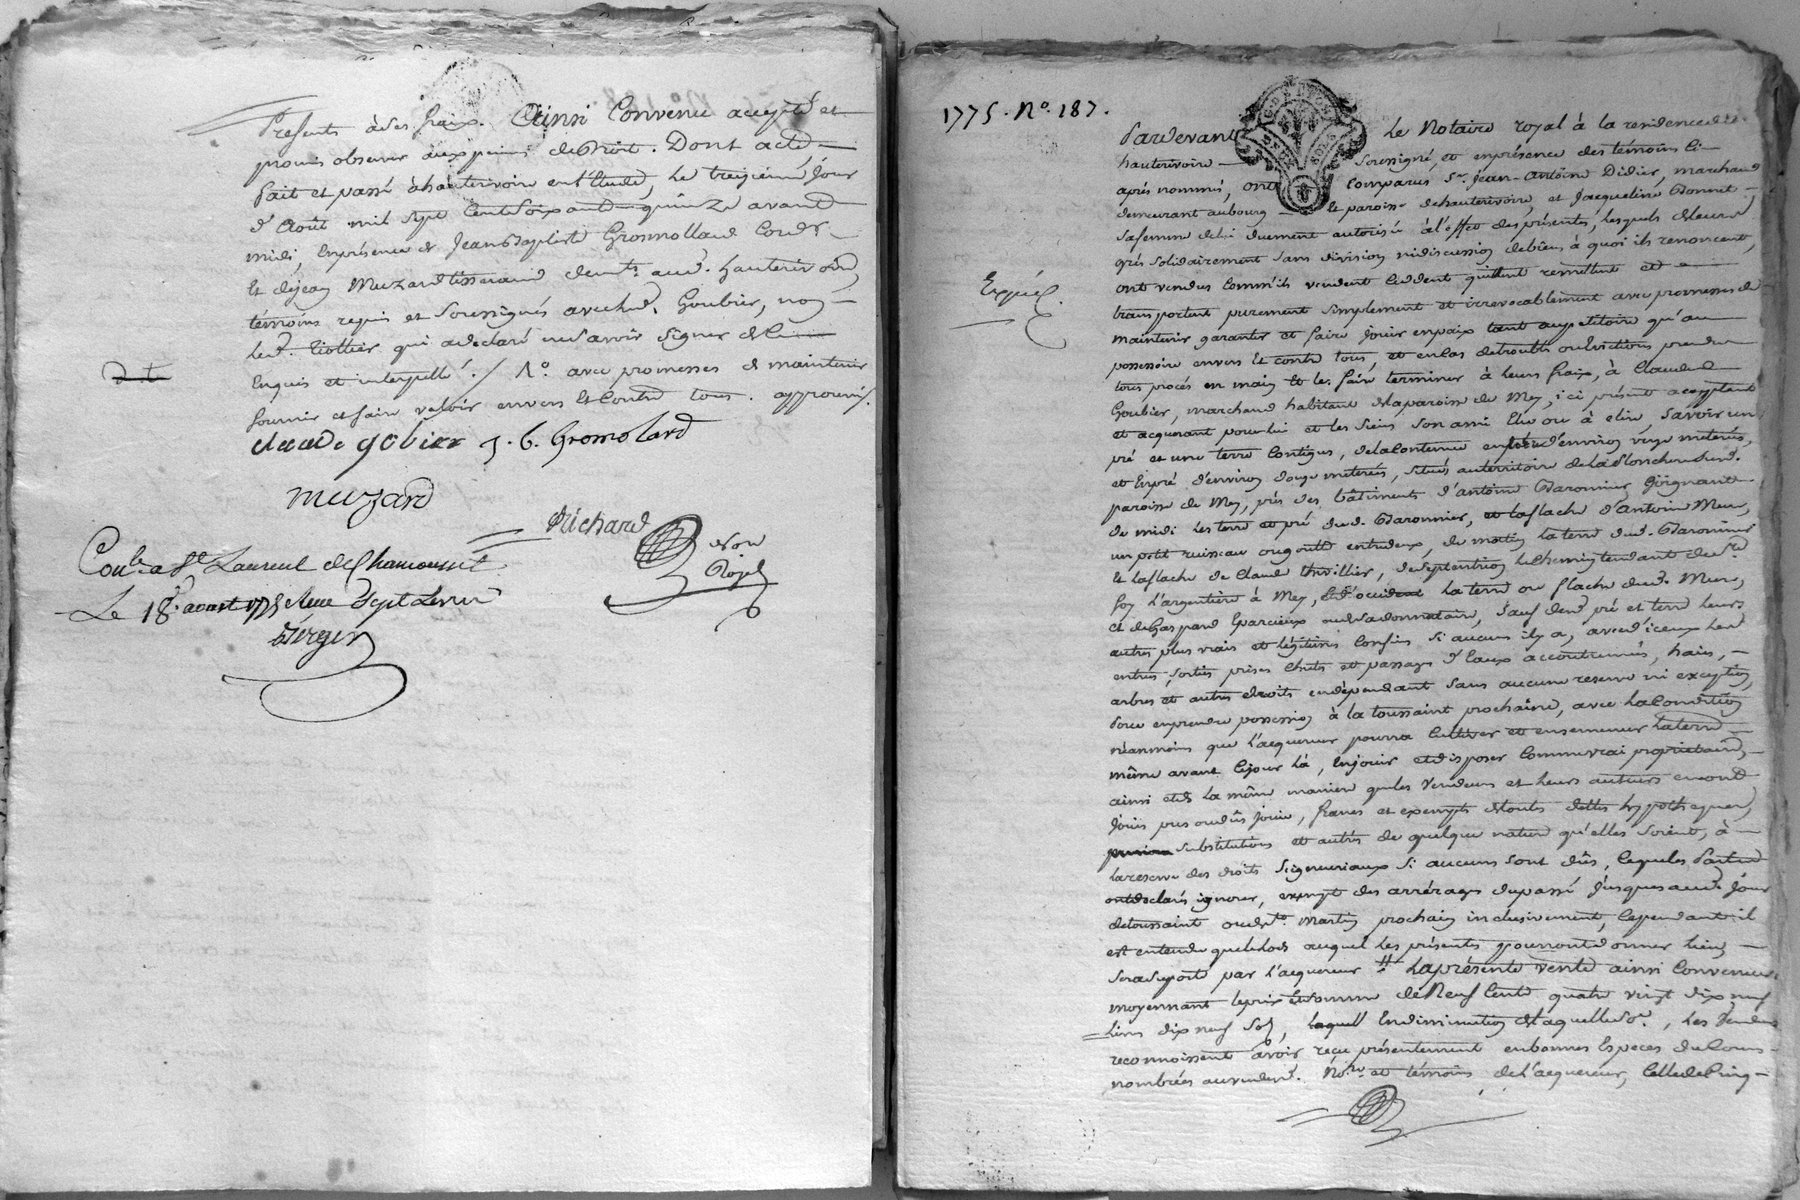 Presents à ses fraix. Ainsi Convenu accepté et
promis observer aux peines de Droit. Dont acte
fait et passé à hauterivoire en l'Etude, le treizieme Jour
d'Août mil sept Cent Soixante quinze avant
midi, En présence de Jean Baptiste Grosmollard Cord.r
Et de Jean Muzard tisserand dem.ts aud. hauterivoire,
témoins requis et soussignés avec led. Goubier, non
led. qui a declaré ne savoir signer de ce
Enquis et interpellé ./ N.o avec promesses de maintenir
fournir et faire valoir envers Et Contre tous. approuvé.
claude gobier J. b. Gromolard
muzard
Richard
Not.re
Royal
Con.lé a S.t Laurent de Chamousset
Le 18.e aoust 1775 Reçu Sept Livres
Berger
1775. N.o 187.
Expiéé.
Pardevant Le Notaire royal à la residence de
hauterivoire soussigné, et en présence des témoins Ci
après nommés, ont Comparus S.r Jean-Antoine Didier, marchand
demeurant au bourg et paroisse de hauterivoire, et Jacqueline Bonnet
sa femme de lui duement autorisée à l'effet des présentes, lesquels de leurs
grés solidairement sans division ni discussion de biens à quoi ils renoncent,
ont vendus Comm'ils vendent Cedent quittent remettent et
transportent purement simplement et irrevocablement avec promesses de
maintenir garantir et faire jouir en paix tant au petitoire qu'au
possessoire envers Et contre tous, et en Cas de trouble ou Evictions prendre
tous procés en main Et les faire terminer à leurs fraix, à Claude
Goubier, marchand habitant de la paroisse de Mey, ici présent acceptant
et acquerant pour lui et les Siens son ami Elu ou à elire, Savoir un
pré et une terre Contigus, de la Contenue en terre d'environ meterées,
et En pré d'environ douze meterées, situés au territoire de
paroisse de Mey, près des bâtiments d'antoine Baronnier, joignant
de midi les terre et pré dud. Baronnier, et la flache d'Antoine Mure,
un petit ruisseau ou goutte entredeux, de matin la terre dud. Baronnier
et la flache de Claude, de septentrion le Chemin tendant de S.te
foy l'argentière à Mey, Et d'occident la terre ou flache dud. Mure,
et de Gaspard Garcieux ou de sa donnataire, Sauf desd. pré et terre leurs
autres plus vrais et légitimes Confins Si aucuns il y a, avec d'iceux les
entrées, sorties, prises Chutes et passages d'Eaux accoutumés, haies,
arbres et autres droits en dépendant Sans aucune reserve ni exception,
pour en prendre possession à la toussaint prochaine, avec la Condition
néanmoins que l'acquereur pourra Cultiver et ensemencer la terre
même avant Ce jour là, En jouir et disposer Comme vrai proprietaire,
ainsi et de la même maniere que les Vendeurs et leurs auteurs en ont
Jouis pus ou dûs jouir, francs et exempts de toutes dettes hypotheques,
substitutions et autres de quelque nature qu'elles soient, à
la reserve des droits Seigneuriaux Si aucuns sont dûs, lequels Parties
ont déclaré ignorer, exempt des arrérages du passé Jusques aud. Jour
de toussaint ou de S.t Martin prochain inclusivement, Cependant il
est entendu que le lods auquel les présentes pourront donner lieu,
Sera Suporté par l'acquereur # La présente vente ainsi Convenue
moyennant le prix Et Somme de Neuf Cent quatre vingt dix neuf
Livres dix neuf Sols, Laquelle En diminution de laquelle So.e, les Vendeurs
reconnoissent avoir reçu présentement en bonnes Especes du Cours
nombrées au vu dud. No.re et témoins de l'acquereur, Celle de Cinq